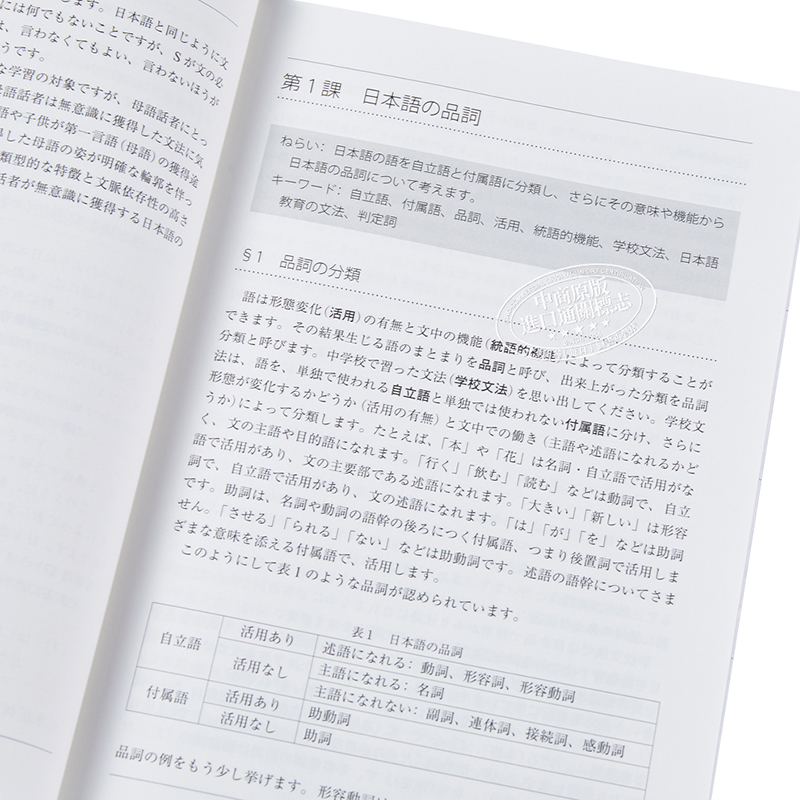 ます。日本語と同じように文
には何でもないことですが、Sが文の必
は、言わなくてもよい、言わないほうが
うです。
な学習の対象ですが、母語話者にとっ
母語話者は無意識に獲得した文法に気
語や子供が第一言語(母語)の獲得途
した母語の姿が明確な輪郭を伴っ
類型的な特徴と文脈依存性の高さ
話者が無意識に獲得する日本語の
第1課 日本語の品詞
ねらい:日本語の語を自立語と付属語に分類し、さらにその意味や機能から
日本語の品詞について考えます。
キーワード:自立語、付属語、品詞、活用、統語的機能、学校文法、日本語
教育の文法、判定詞
§1 品詞の分類
語は形態変化(活用)の有無と文中の機能(統語的機能)によって分類することが
できます。その結果生じる語のまとまりを品詞と呼び、出来上がった分類を品詞
分類と呼びます。中学校で習った文法(学校文法)を思い出してください。学校文
法は、語を、単独で使われる自立語と単独では使われない付属語に分け、さらに
形態が変化するかどうか(活用の有無)と文中での働き(主語や述語になれるかど
うか)によって分類します。たとえば、「本」や「花」は名詞・自立語で活用がな
く、文の主語や目的語になれます。「行く」「飲む」「読む」などは動詞で、自立
語で活用があり、文の主要部である述語になれます。「大きい」「新しい」は形容
詞で、自立語で活用があり、文の述語になれます。「は」「が」「を」などは助詞
です。助詞は、名詞や動詞の語幹の後ろにつく付属語、つまり後置詞で活用しま
せん。「させる」「られる」「ない」などは助動詞です。述語の語幹についてさま
ざまな意味を添える付属語で、活用します。
このようにして表1のような品詞が認められています。
表1 日本語の品詞
自立語 活用あり 述語になれる:動詞、形容詞、形容動詞
活用なし 主語になれる:名詞
主語になれない:副詞、連体詞、接続詞、感動詞
付属語 活用あり 助動詞
活用なし 助詞
品詞の例をもう少し挙げます。形容動詞は
中商原版
進口通關標志